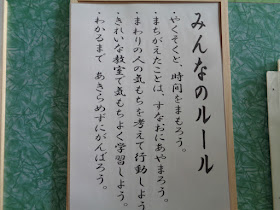 みんなのルール
・やくそくと、時間をまもろう。
・まちがえたことは、すなおにあやまろう。
・まわりの人の気もちを考えて行動しよう。
・きれいな教室で気もちよく学習しよう。
・わかるまで あきらめずにがんばろう。